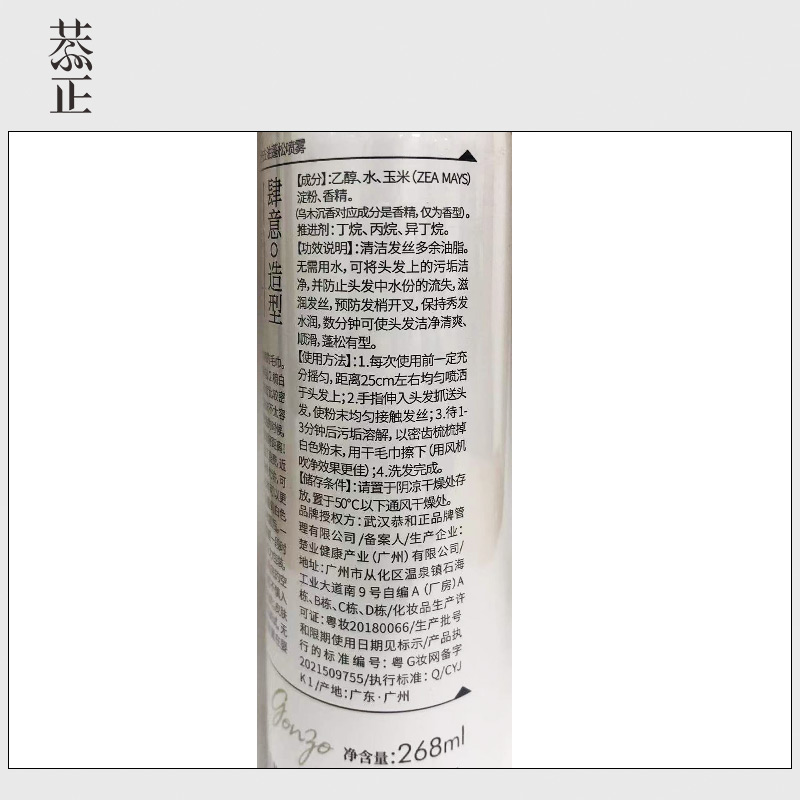 恭正
蓬松喷雾
肆意。造型
【成分】:乙醇、水、玉米(ZEA MAYS)
淀粉、香精。
(乌木沉香对应成分是香精,仅为香型)。
推进剂:丁烷、丙烷、异丁烷。
【功效说明】:清洁发丝多余油脂。
无需用水,可将头发上的污垢洁
净,并防止头发中水份的流失,滋
润发丝,预防发梢开叉,保持秀发
水润,数分钟可使头发洁净清爽、
顺滑,蓬松有型。
【使用方法】:1.每次使用前一定充
分摇匀,距离25cm左右均匀喷洒
于头发上;2.手指伸入头发抓送头
发,使粉末均匀接触发丝;3.待1-
3分钟后污垢溶解,以密齿梳梳掉
白色粉末,用干毛巾擦下(用风机
吹净效果更佳);4.洗发完成。
【储存条件】:请置于阴凉干燥处存
放,置于50℃以下通风干燥处。
品牌授权方:武汉恭和正品牌管
理有限公司/备案人/生产企业:
楚业健康产业(广州)有限公司/
地址:广州市从化区温泉镇石海
工业大道南9号自编A(厂房)A
栋、B栋、C栋、D栋/化妆品生产许
可证:粤妆20180066/生产批号
和限期使用日期见标示/产品执
行的标准编号:粤G妆网备字
2021509755/执行标准:Q/CYJ
K1/产地:广东·广州
gonzo
净含量:268ml